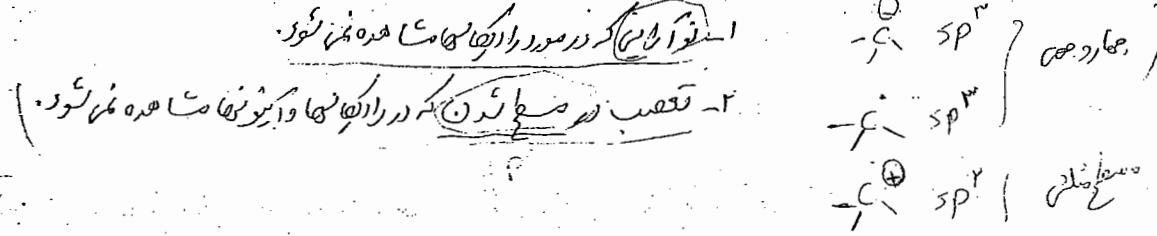 ۱- نوآرایی که در مورد رادیکالها مشاهده نمی شود.
۲- تعصب در مسطح شدن که در رادیکالها و آنیونها مشاهده نمی شود.)
؟
-C- ⊖ sp³
-C- sp³
چهاروجهی
-C- ⊕ sp² مسطح مثلثی